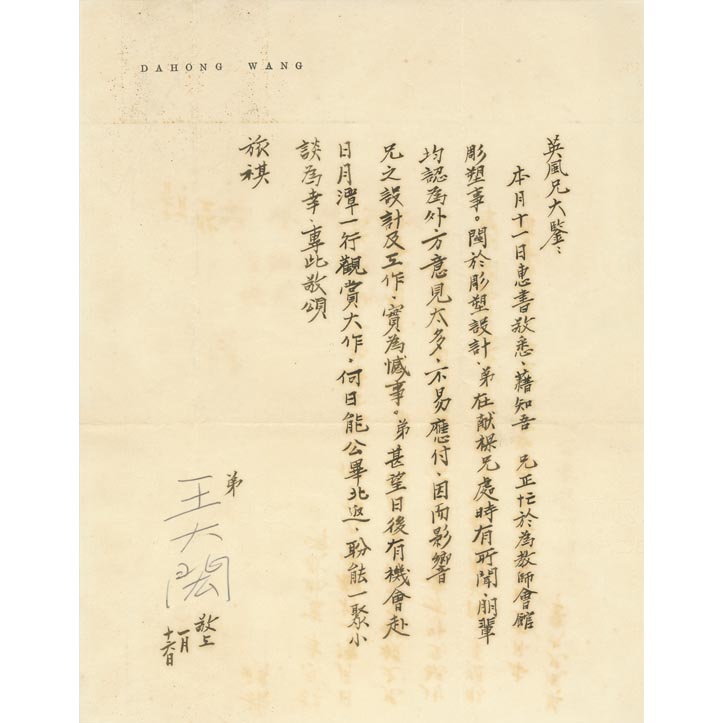 DAHONG WANG
英風兄大鑒、
本月十一日惠書敬悉、藉知吾 兄正忙於為教師會館
彫塑事。關於彫塑設計、弟在献樑兄處時有所聞、朋輩
均認為外方意見太多、不易應付、因而影響
兄之設計及工作、實為憾事。弟甚望日後有機會赴
日月潭一行觀賞大作、何日能公畢北返、盼能一聚小
談為幸、專此敬頌
旅祺
弟
王大閎
敬上
一月
十六日